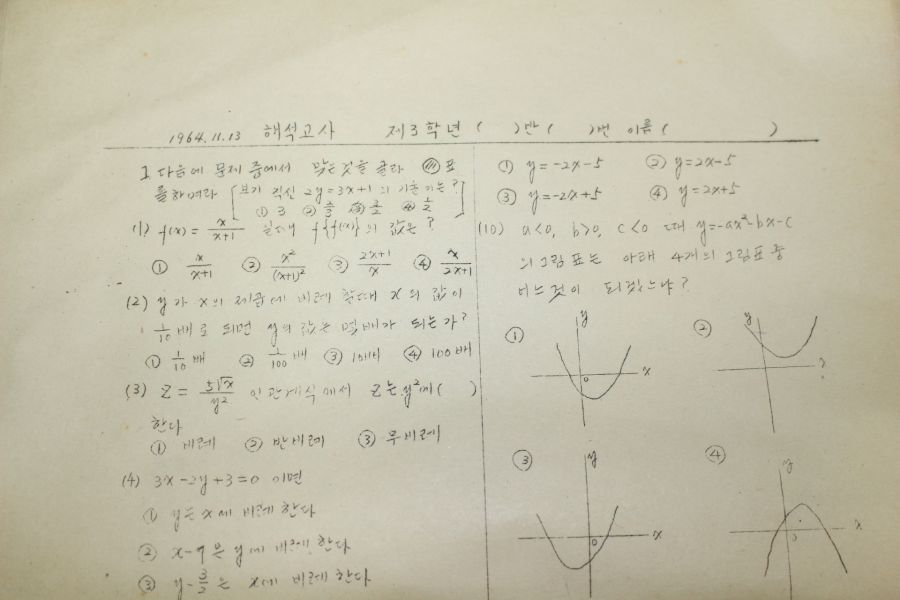 1964.11.13 해석고사 제3학년 ( )반 ( )번 이름 ( )
I. 다음에 문제 중에서 맞는것을 골라 표
를하여라 [보기 직선 2y=3x+1의 기울기는?
① 3 ② 2/3 ③ 3/2 ④ 1/2]
(1) f(x) = x/(x+1) 일때 f{f(x)}의 값은?
① x/(x+1) ② x²/(x+1)² ③ (2x+1)/x ④ x/(2x+1)
(2) y가 x의 제곱에 비례 할때 x의 값이
1/10 배로 되면 y의 값는 몇배가 되는가?
① 1/10 배 ② 1/100 배 ③ 10배 ④ 100배
(3) Z = 5√x/y² 인 관계식에서 Z는 y²에 ( )
한다
① 비례 ② 반비례 ③ 무비례
(4) 3x-2y+3=0 이면
① y는 x에 비례한다
② x-9은 y에 비례한다
③ y-3/2는 x에 비례한다
① y=-2x-5 ② y=2x-5
③ y=-2x+5 ④ y=2x+5
(10) a<0, b>0, c<0 때 y=-ax²-bx-c
의 그림표는 아래 4개의 그림표 중
어느것이 되겠느냐?
① y x o
② y x
③ y x o
④ y x